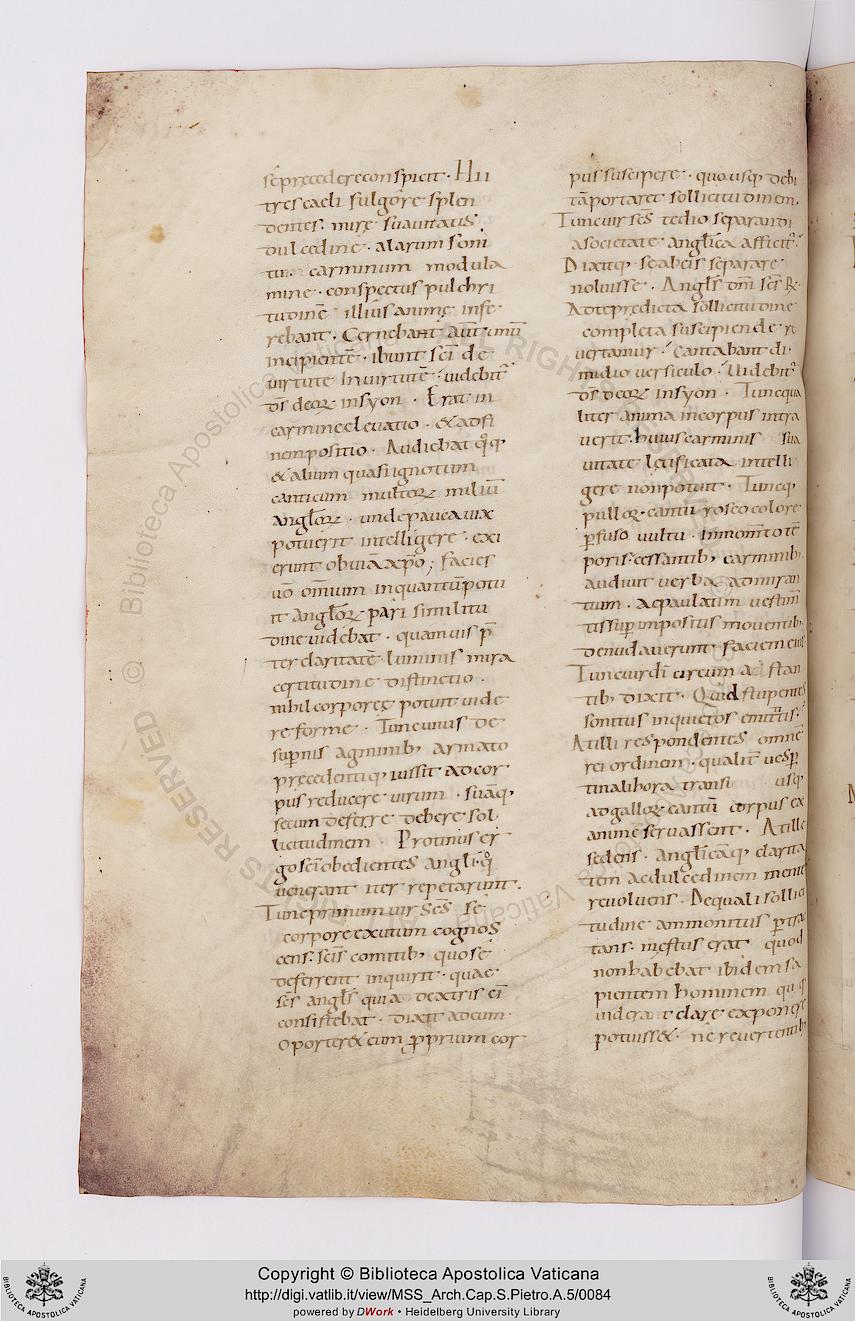 se precedere conspicit · Hii
tres caeli fulgore splen
dentes · mirę suauitatis
dulcedine · alarum soni
tu · carminum modula
mine · conspectus pulchri
tudinē illius animę infe
rebant · Cernebant aūt unū
incipientē · ibunt sc̄i de
uirtute In uirtutē · uidebit᷑
dꝰ̄ deoꝝ in syon · Erat in
carmine eleuatio · & adsi
nem positio · Audiebat q̊q,
& alium quasi ignotum
canticum multoꝝ miliū
angłoꝝ · unde pauca uix
potuerit intelligere · exi
erunt obuiā xp̄o ; facies
uō om̄ium inquantū potu
it angłoꝝ pari similitu
dine uidebat · quamuis p̄
ter claritatē luminis mira
certitudine distinctio ·
nihil corporeę potuit uide
re formę · Tunc unus de
supernis agminib; armato
precedentiq; iussit ad cor
pus reducere uirum · suāq,
secum deferre debere sol
licitudinem · Protinus er
go sc̄i obedientes angli · q̊
uenerant iter repetarunt ·
Tunc primum uir sc̄s se
corpore exutum cognos
cens · sc̄is comitib; quo se
deferrent inquirit · quae
sc̄s angłs qui a dextris ei
consistebat · dixit ad eum ·
Oporter& eum ꝓprium cor
pus suscipere · quo usq; debi
tā portaret sollicitudinem ·
Tunc uir sc̄s tedio separandi
a societate anglica afficit᷑ ·
Dixitq; se ab eis separare
noluisse · Angłs dn̄i sc̄s R̷ ·
Ad te predicta sollicitudine
completa suscipiende re
uertamur · Cantabant di
midio uersiculo · Uidebit᷑
dꝰ̄ deoꝝ in syon · Tunc qua
liter anima in corpus intra
uerit · huius carminis sua
uitate lętificata intelli
gere non potuit · Tuncq;
pulloꝝ cantu roseo colore
ꝑfuso uultu · In mom̄to tē
poris · cessantib; carminib;
audiuit uerba admiran
tium · ac paulatim uestim̄
tis suꝑ impositis mouentib;
denudauerunt faciem eius
Tunc uir dī circum adstan
tib; dixit · Quid stupentes
sonitus inquietos emittitis ·
At illi respondentes omnē
rei ordinem · qualit᷑ uesꝑ
tinali hora transi usq;
ad galloꝝ cantū corpus ex
anime seruassent · At ille
sedens · anglicāq; clarita
tem ac dulcedinem mente
reuoluens · De quali sollici
tudine ammonitus ꝑtrac
tans · męstus erat quod
non habebat ibidem sa
pientem hominem qui
uiderant clare exponere
potuiss& · nē reuertentib;
Copyright © Biblioteca Apostolica Vaticana
http://digi.vatlib.it/view/MSS_Arch.Cap.S.Pietro.A.5/0084
powered by DWork • Heidelberg University Library